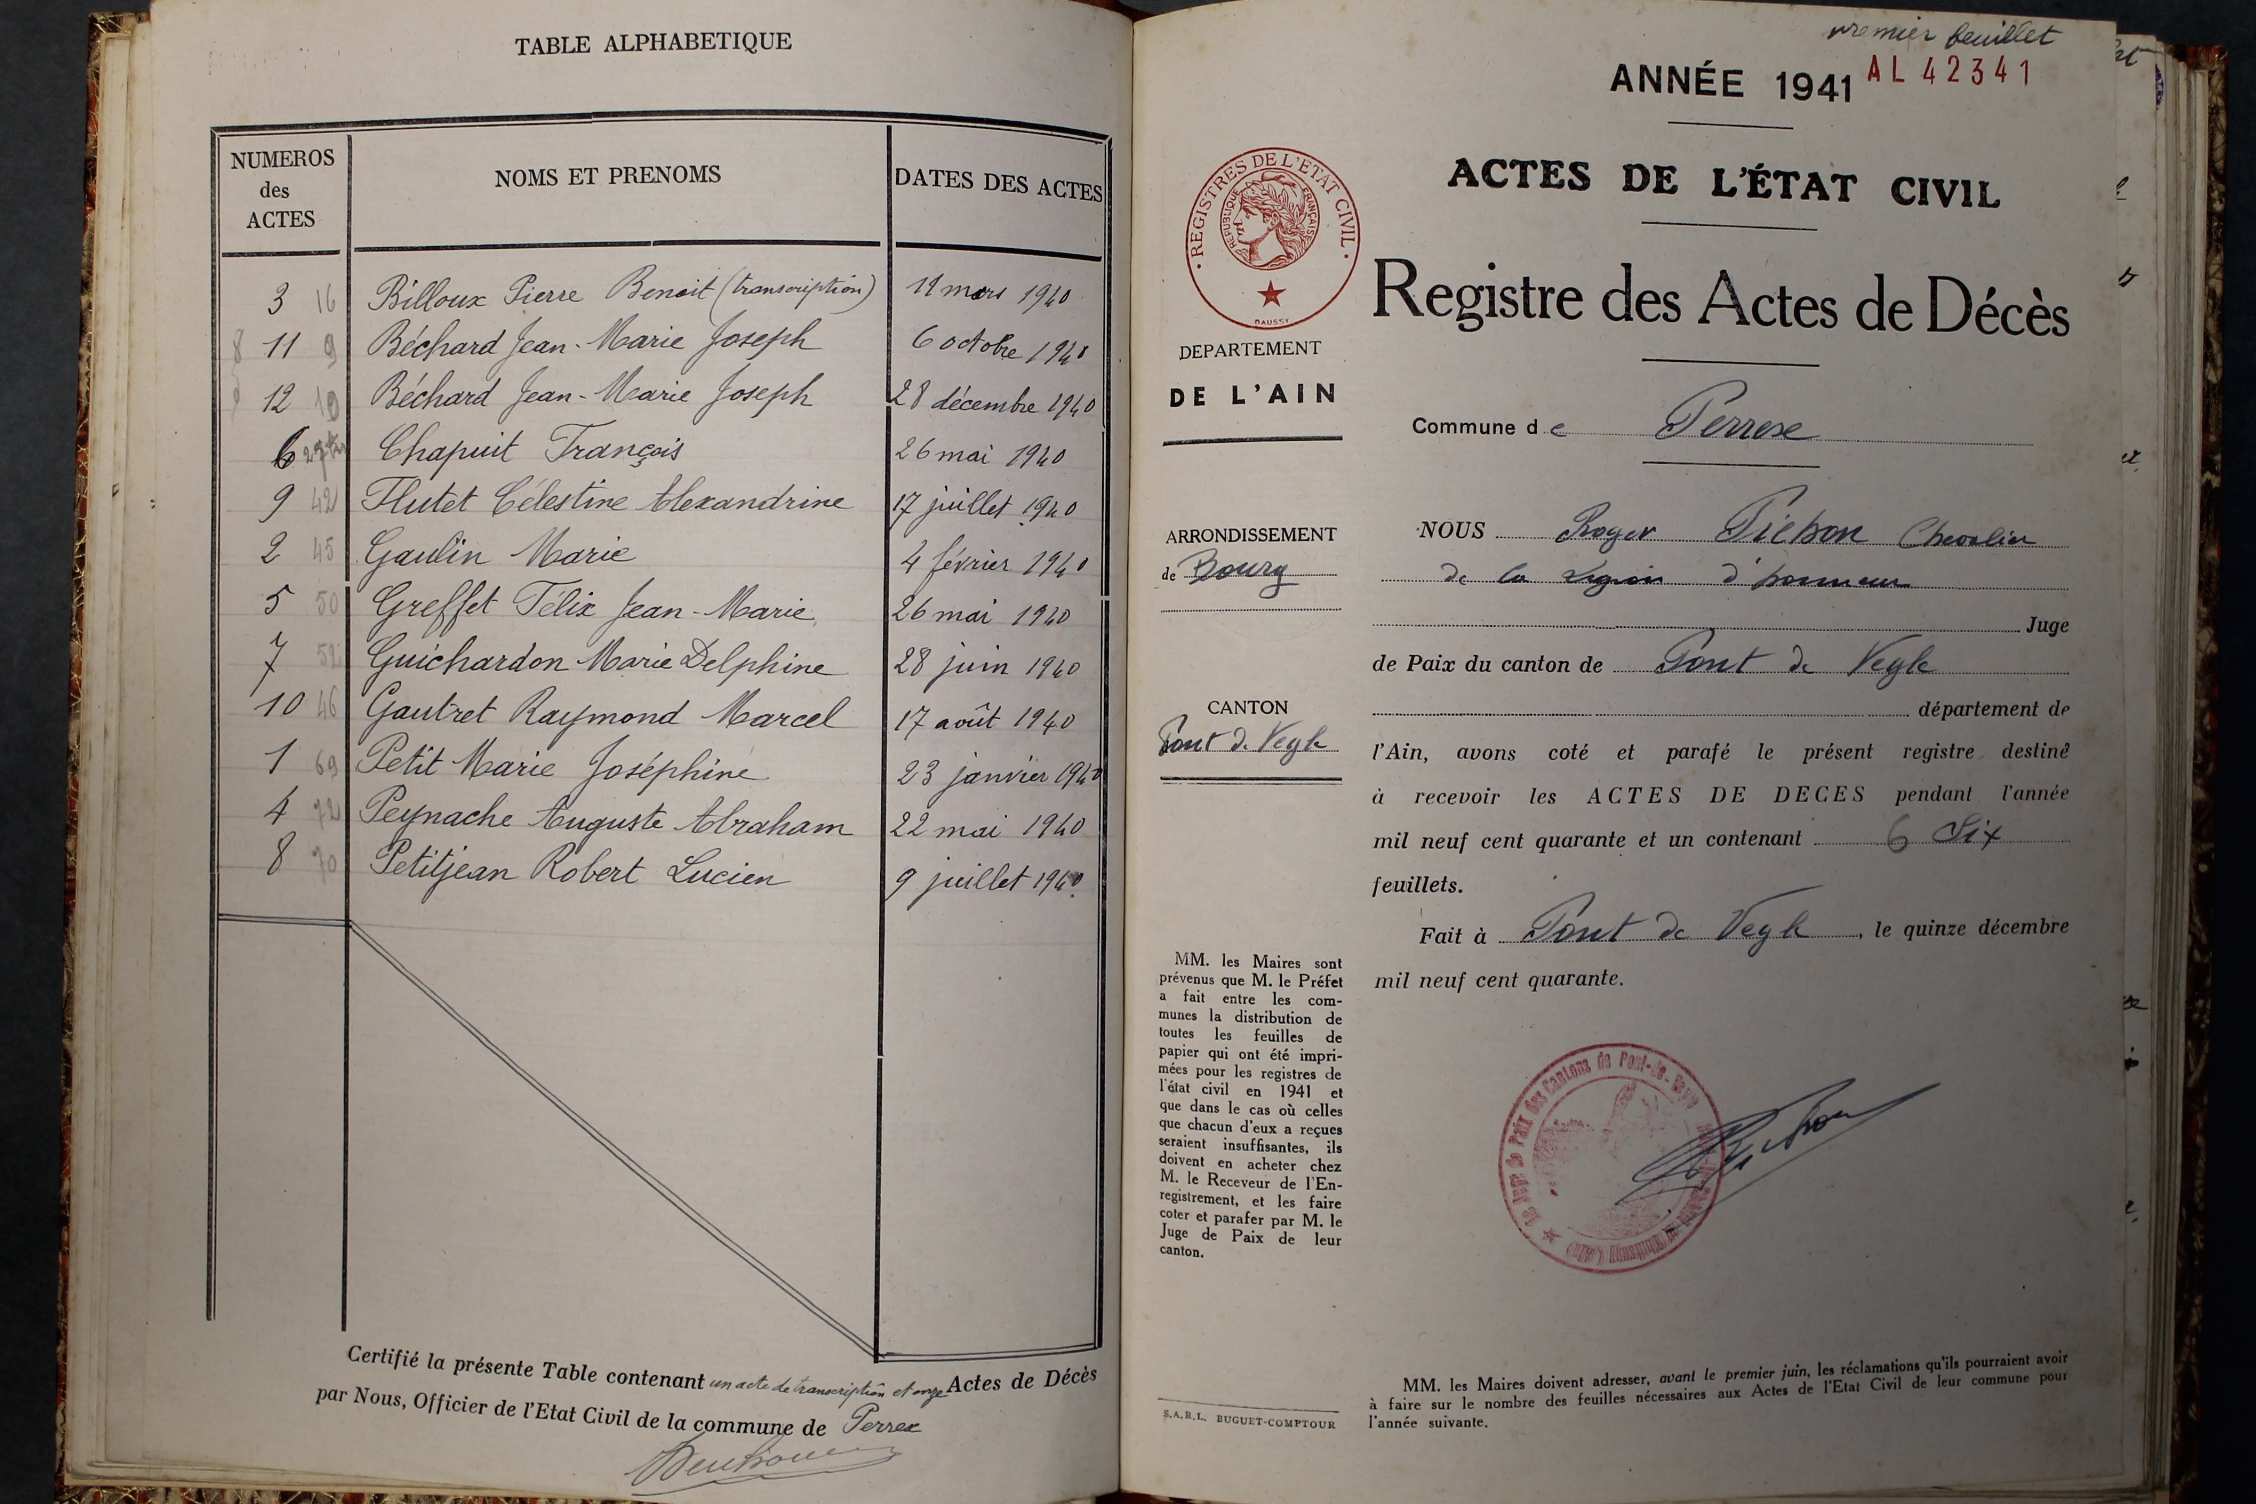 TABLE ALPHABETIQUE
NUMEROS
des
ACTES
NOMS ET PRENOMS
DATES DES ACTES
3 16 Billoux Pierre Benoit (transcription) 12 mars 1940
11 9 Béchard Jean-Marie Joseph 6 octobre 1940
12 Béchard Jean-Marie Joseph 28 décembre 1940
6 Chapuit François 26 mai 1940
9 42 Flutet Célestine Alexandrine 17 juillet 1940
2 45 Gaulin Marie 4 février 1940
5 50 Greffet Félix Jean-Marie 26 mai 1940
7 52 Guichardon Marie Delphine 28 juin 1940
10 46 Gautret Raymond Marcel 17 août 1940
1 69 Petit Marie Joséphine 23 janvier 1940
4 72 Peynache Auguste Abraham 22 mai 1940
8 70 Petitjean Robert Lucien 9 juillet 1940
Certifié la présente Table contenant un acte de transcription et onze Actes de Décès
par Nous, Officier de l'Etat Civil de la commune de Perrex
premier feuillet
ANNÉE 1941 AL 42341
ACTES DE L'ÉTAT CIVIL
Registre des Actes de Décès
REGISTRES DE L'ETAT CIVIL
REPUBLIQUE FRANÇAISE
DAUSSY
DEPARTEMENT
DE L'AIN
ARRONDISSEMENT
de Bourg
CANTON
Pont de Veyle
MM. les Maires sont
prévenus que M. le Préfet
a fait entre les com-
munes la distribution de
toutes les feuilles de
papier qui ont été impri-
mées pour les registres de
l'état civil en 1941 et
que dans le cas où celles
que chacun d'eux a reçues
seraient insuffisantes, ils
doivent en acheter chez
M. le Receveur de l'En-
registrement, et les faire
coter et parafer par M. le
Juge de Paix de leur
canton.
S.A.R.L. BUGUET-COMPTOUR
Commune de Perrex
NOUS Roger Pichon Chevalier
de la Légion d'honneur
Juge
de Paix du canton de Pont de Veyle
département de
l'Ain, avons coté et parafé le présent registre destiné
à recevoir les ACTES DE DECES pendant l'année
mil neuf cent quarante et un contenant 6 Six
feuillets.
Fait à Pont de Veyle, le quinze décembre
mil neuf cent quarante.
Juge de Paix des Cantons de Pont-de-Veyle
MM. les Maires doivent adresser, avant le premier juin, les réclamations qu'ils pourraient avoir
à faire sur le nombre des feuilles nécessaires aux Actes de l'Etat Civil de leur commune pour
l'année suivante.